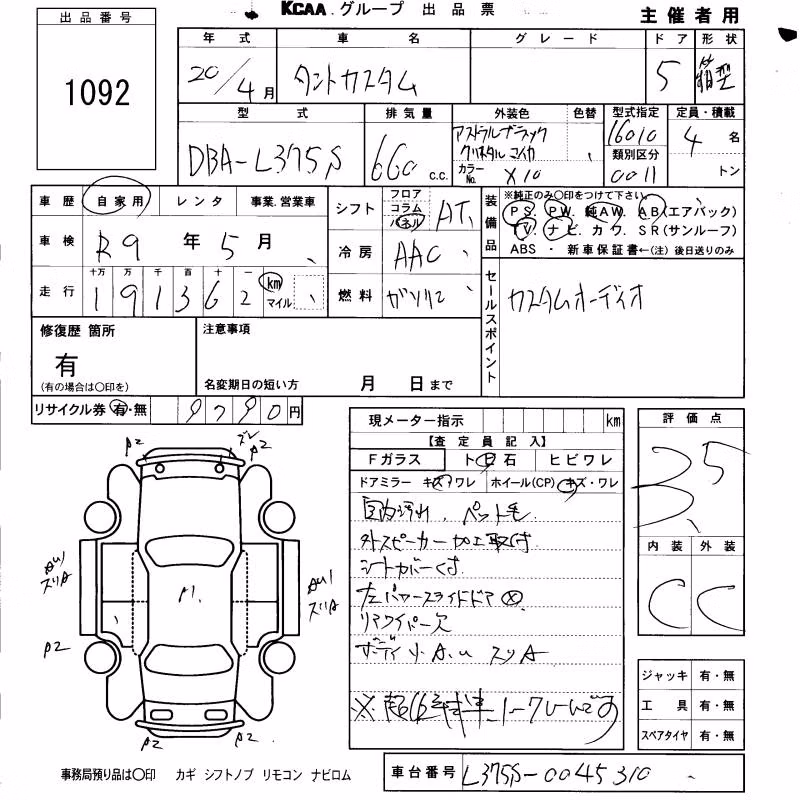 KCAA グループ 出品票
主催者用
出品番号
1092
年式 車名 グレード ドア 形状
20/4月 タントカスタム 5 箱型
型式 排気量 外装色 色替 型式指定 定員・積載
DBA-L375S 660 c.c. アストラルブラック クリスタルマイカ カラーNo. X10 16010 類別区分 0011 4名 トン
車歴 自家用 レンタ 事業.営業車
シフト フロア コラム パネル AT
装備品 ※純正のみ〇印をつけて下さい。
PS. PW. 純AW. AB(エアバック)
TV. ナビ. カワ. SR(サンルーフ)
ABS ・ 新車保証書←(注) 後日送りのみ
車検 R9年5月
冷房 AAC
走行 十万 万 千 百 十 一 km マイル
191362
燃料 ガソリン
セールスポイント
カスタムオーディオ
修復歴 箇所
有
(有の場合は〇印を)
注意事項
名変期日の短い方 月 日まで
リサイクル券 有・無 9790円
現メーター指示 km
【査定員記入】
Fガラス ト日石 ヒビワレ
ドアミラー キズ・ワレ ホイール(CP) キズ・ワレ
室内汚れ、ペット毛
外スピーカー加工取付
シートカバー付
左パワースライドドア ⊗
リアワイパー欠
ボディ小A.U スリA
評価点
3.5
内装 外装
C C
ジャッキ 有・無
工具 有・無
スペアタイヤ 有・無
A2 ズレ A2
AU1 スリA
A1
AU1 スリA
A2
A2 A2
事務局預り品は〇印 カギ シフトノブ リモコン ナビロム
車台番号 L375S-0045310